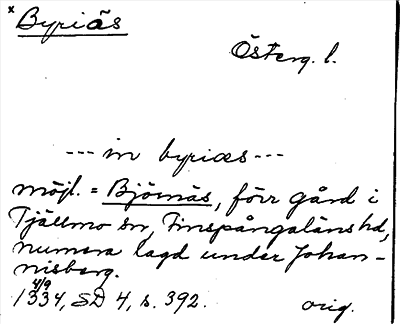 x Byriäs
Österg. l.
--- in byriæs ---
möjl. = Björnäs, förr gård i
Tjällmo sn, Finspångaläns hd,
numera lagd under Johan-
nisberg.
4/9
1334, SD 4, s. 392. orig.